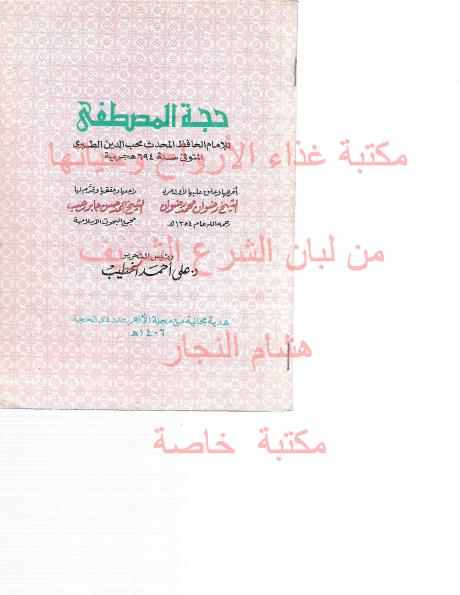 حجة المصطفى
للإمام الحافظ المحدث محب الدين الطبرى
المتوفى سنة ٦٩٤ هجرية
أخرجها وعلق عليها لأول مرة
الشيخ رضوان محمد رضوان
رحمه الله عام ١٣٥٤ هـ
راجعها وحققها وقدم لها
الشيخ أحمد حسن جابر رجب
مجمع البحوث الإسلامية
رئيس التحرير
د. على أحمد الخطيب
هدية مجانية مع مجلة الأزهر عدد ذى الحجة
١٤٠٦ هـ
مكتبة غذاء الأرواح
من لبان الشرع الشريف
هشام النجار
مكتبة خاصة